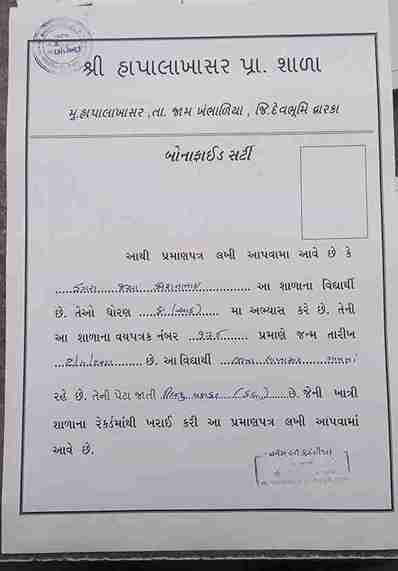 શ્રી હાપાલાખાસર પ્રા. શાળા
મુ.હાપાલાખાસર ,તા. જામ ખંભાળિયા , જિ.દેવભૂમિ દ્વારકા
બોનાફાઈડ સર્ટી
આથી પ્રમાણપત્ર લખી આપવામા આવે છે કે
આ શાળાના વિદ્યાર્થી
છે. તેઓ ધોરણ ....૮ (આઠ)..... મા અભ્યાસ કરે છે. તેની
આ શાળાના વયપત્રક નંબર ...૧૩૬... પ્રમાણે જન્મ તારીખ
છે. આ વિદ્યાર્થી
રહે છે. તેની પેટા જાતી હિન્દુ છે. જેની ખાત્રી
શાળાના રેકર્ડમાંથી ખરાઈ કરી આ પ્રમાણપત્ર લખી આપવામાં
આવે છે.